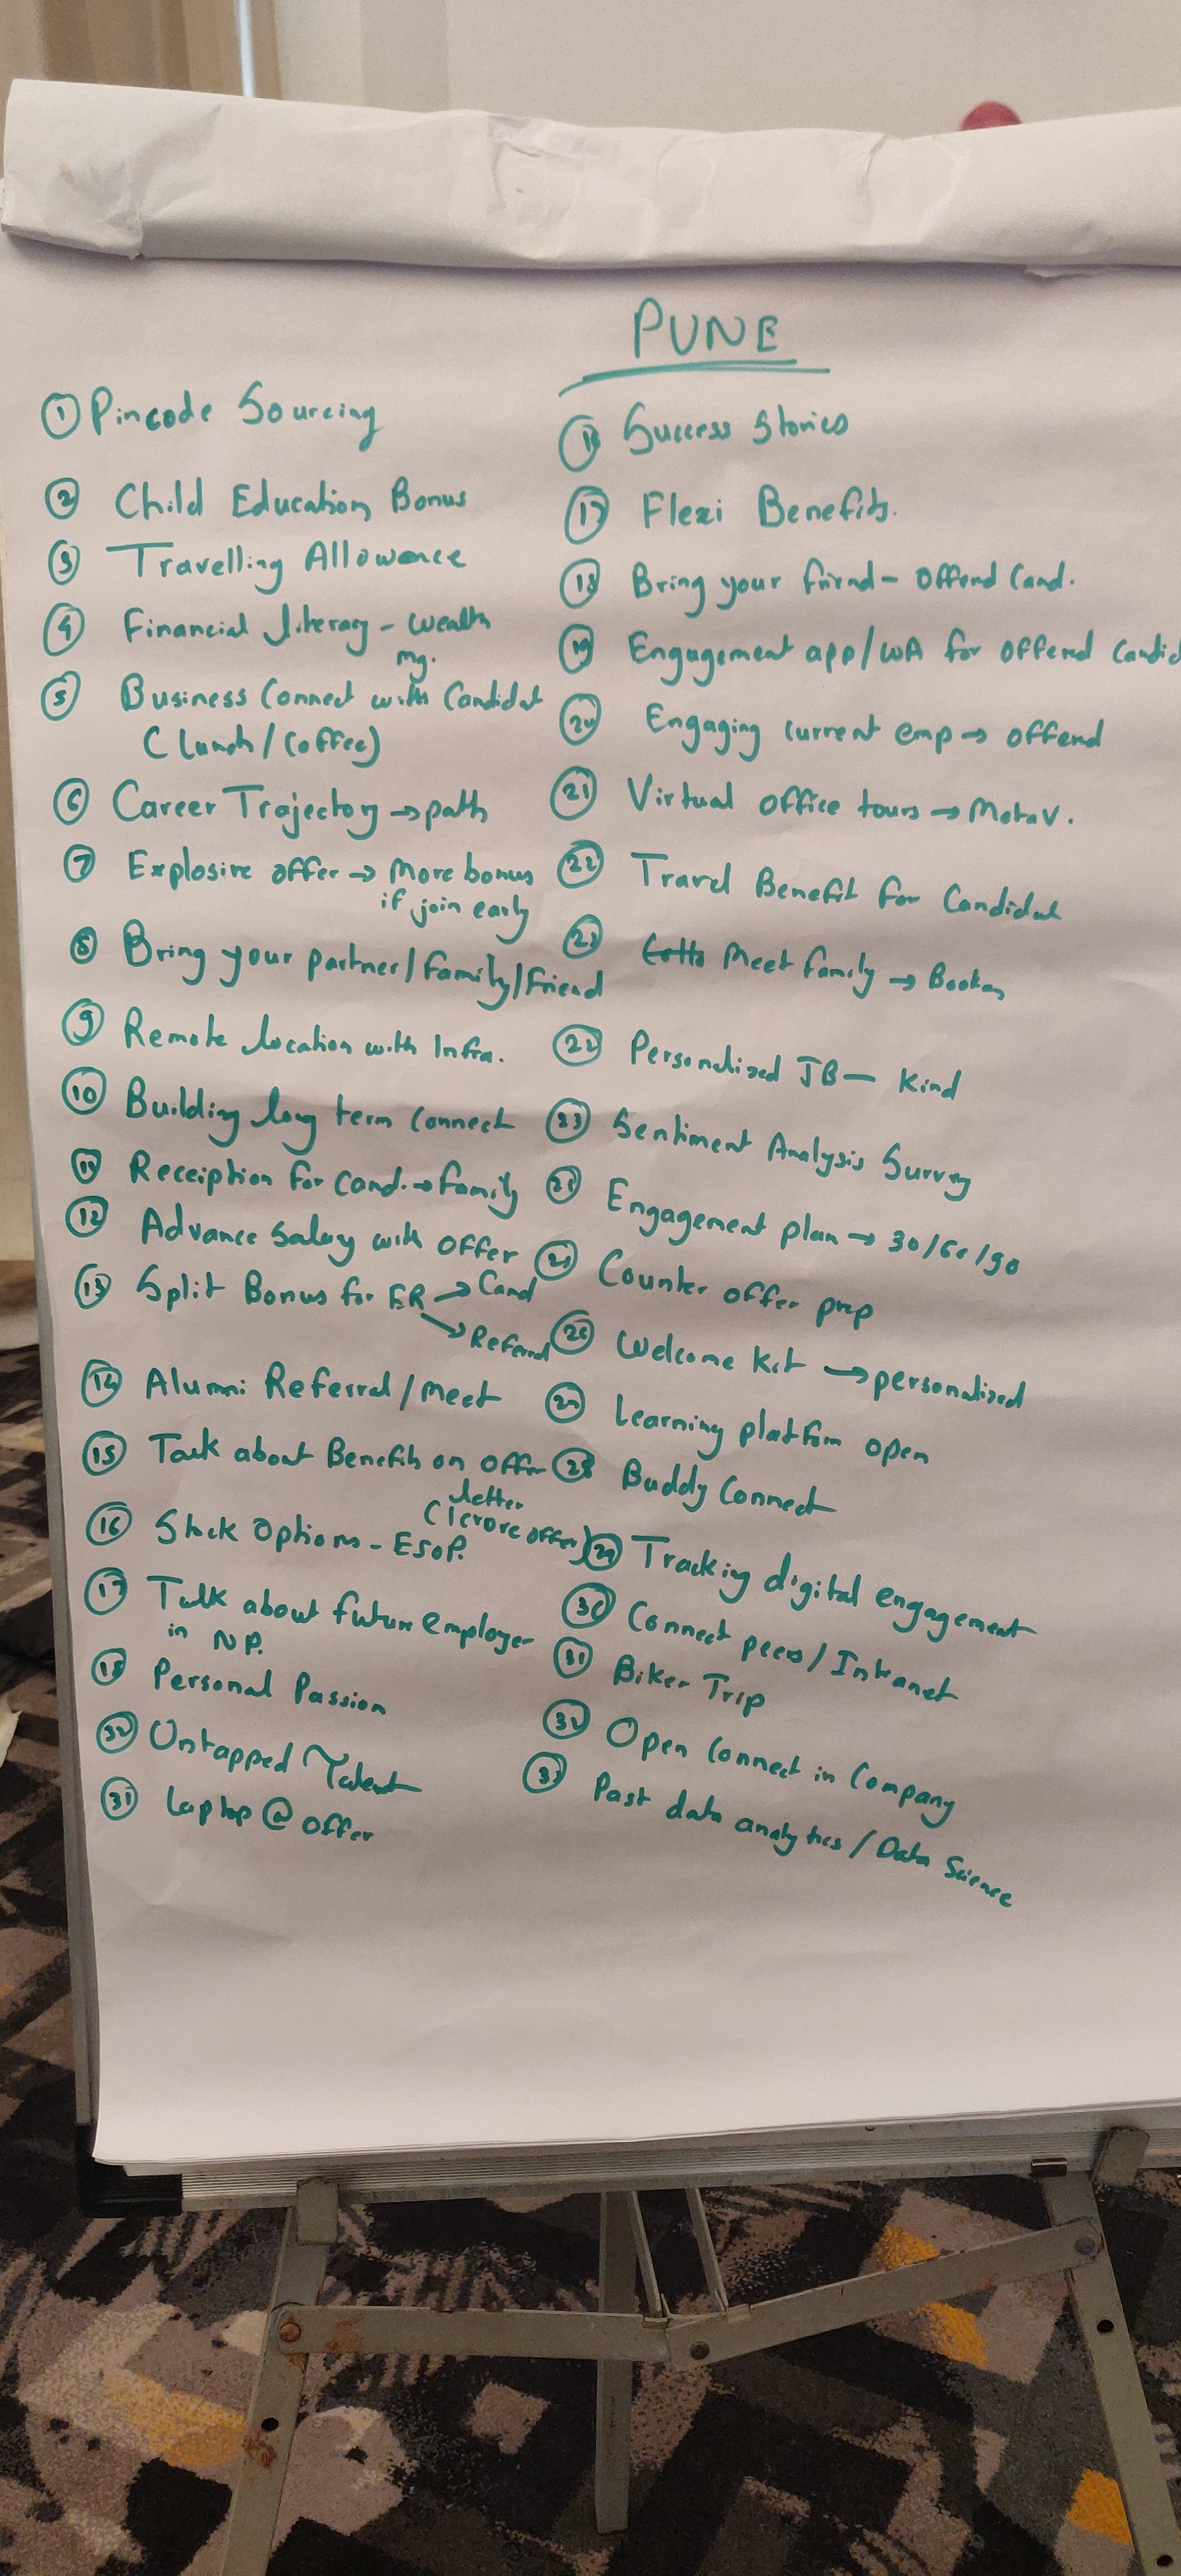 PUNE
1 Pincode Sourcing
2 Child Education Bonus
3 Travelling Allowance
4 Financial literacy - Wealth
mg.
5 Business Connect with Candidat
(lunch/Coffee)
6 Career Trajectory → path
7 Explosive offer → More bonus
if join early
8 Bring your partner/family/friend
9 Remote location with Infra.
10 Building long term connect
11 Receiption for cand. → family
12 Advance Salary with offer
13 Split Bonus for ER → Cand
→ Referral
14 Alumni Referral/Meet
15 Talk about Benefits on offer
letter
(1 crore offer)
16 Stock Options - ESOP.
17 Talk about future employer
in NP.
18 Personal Passion
32 Untapped Talent
31 Laptop @ offer
Success Stories
17 Flexi Benefits.
18 Bring your friend - offered Cand.
19 Engagement app/WA for offered Candid
20 Engaging current emp → offered
21 Virtual office tours → Metav.
22 Travel Benefit for Candidate
23 Meet family →
22 Personalized JB - Kind
23 Sentiment Analysis Survey
Engagement plan → 30/60/90
Counter offer prep
26 Welcome Kit → personalized
27 Learning platform open
28 Buddy Connect
29 Tracking digital engagement
30 Connect peers/Intranet
31 Biker Trip
32 Open Connect in Company
33 Past data analytics/Data Science